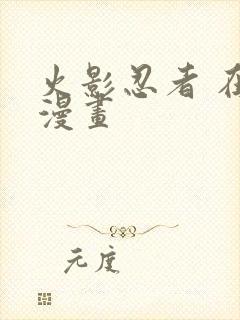 火影忍者 在
漫畫
元度